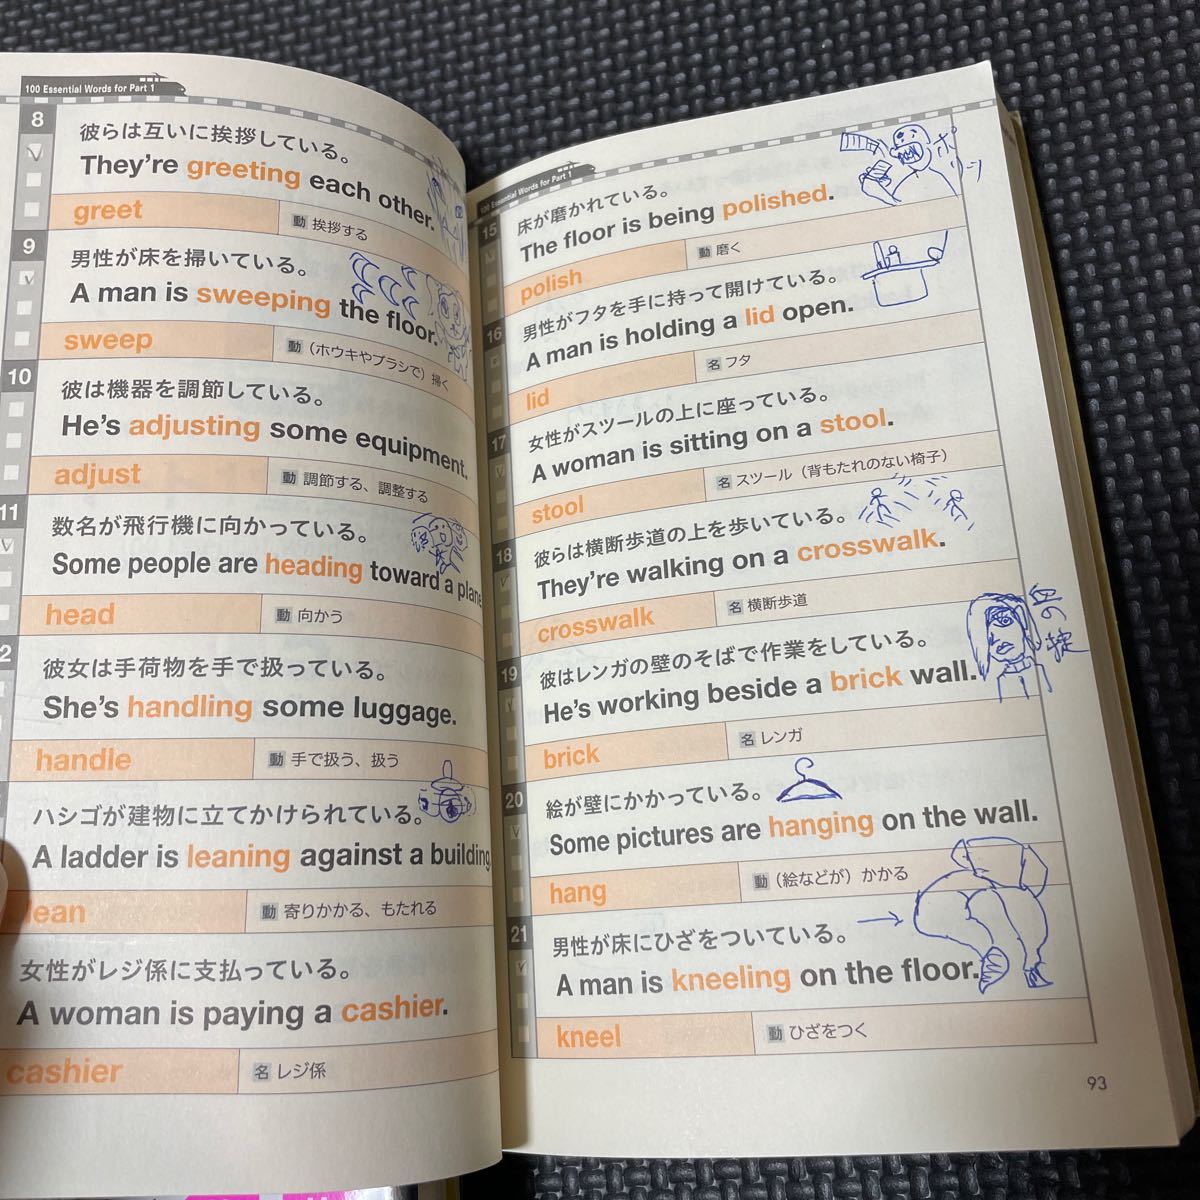 100 Essential Words for Part 1
8
彼らは互いに挨拶している。
They're greeting each other.
greet
動 挨拶する
9
男性が床を掃いている。
A man is sweeping the floor.
sweep
動 (ホウキやブラシで) 掃く
10
彼は機器を調節している。
He's adjusting some equipment.
adjust
動 調節する、調整する
11
数名が飛行機に向かっている。
Some people are heading toward a plane
head
動 向かう
2
彼女は手荷物を手で扱っている。
She's handling some luggage.
handle
動 手で扱う、扱う
ハシゴが建物に立てかけられている。
A ladder is leaning against a building
lean
動 寄りかかる、もたれる
女性がレジ係に支払っている。
A woman is paying a cashier.
cashier
名 レジ係
100 Essential Words for Part 1
15
床が磨かれている。
The floor is being polished.
polish
動 磨く
ポリシ
16
男性がフタを手に持って開けている。
A man is holding a lid open.
lid
名 フタ
17
女性がスツールの上に座っている。
A woman is sitting on a stool.
stool
名 スツール (背もたれのない椅子)
18
彼らは横断歩道の上を歩いている。
They're walking on a crosswalk.
crosswalk
名 横断歩道
19
彼はレンガの壁のそばで作業をしている。
He's working beside a brick wall.
brick
名 レンガ
血の掟
20
絵が壁にかかっている。
Some pictures are hanging on the wall.
hang
動 (絵などが) かかる
21
男性が床にひざをついている。
A man is kneeling on the floor.
kneel
動 ひざをつく
93